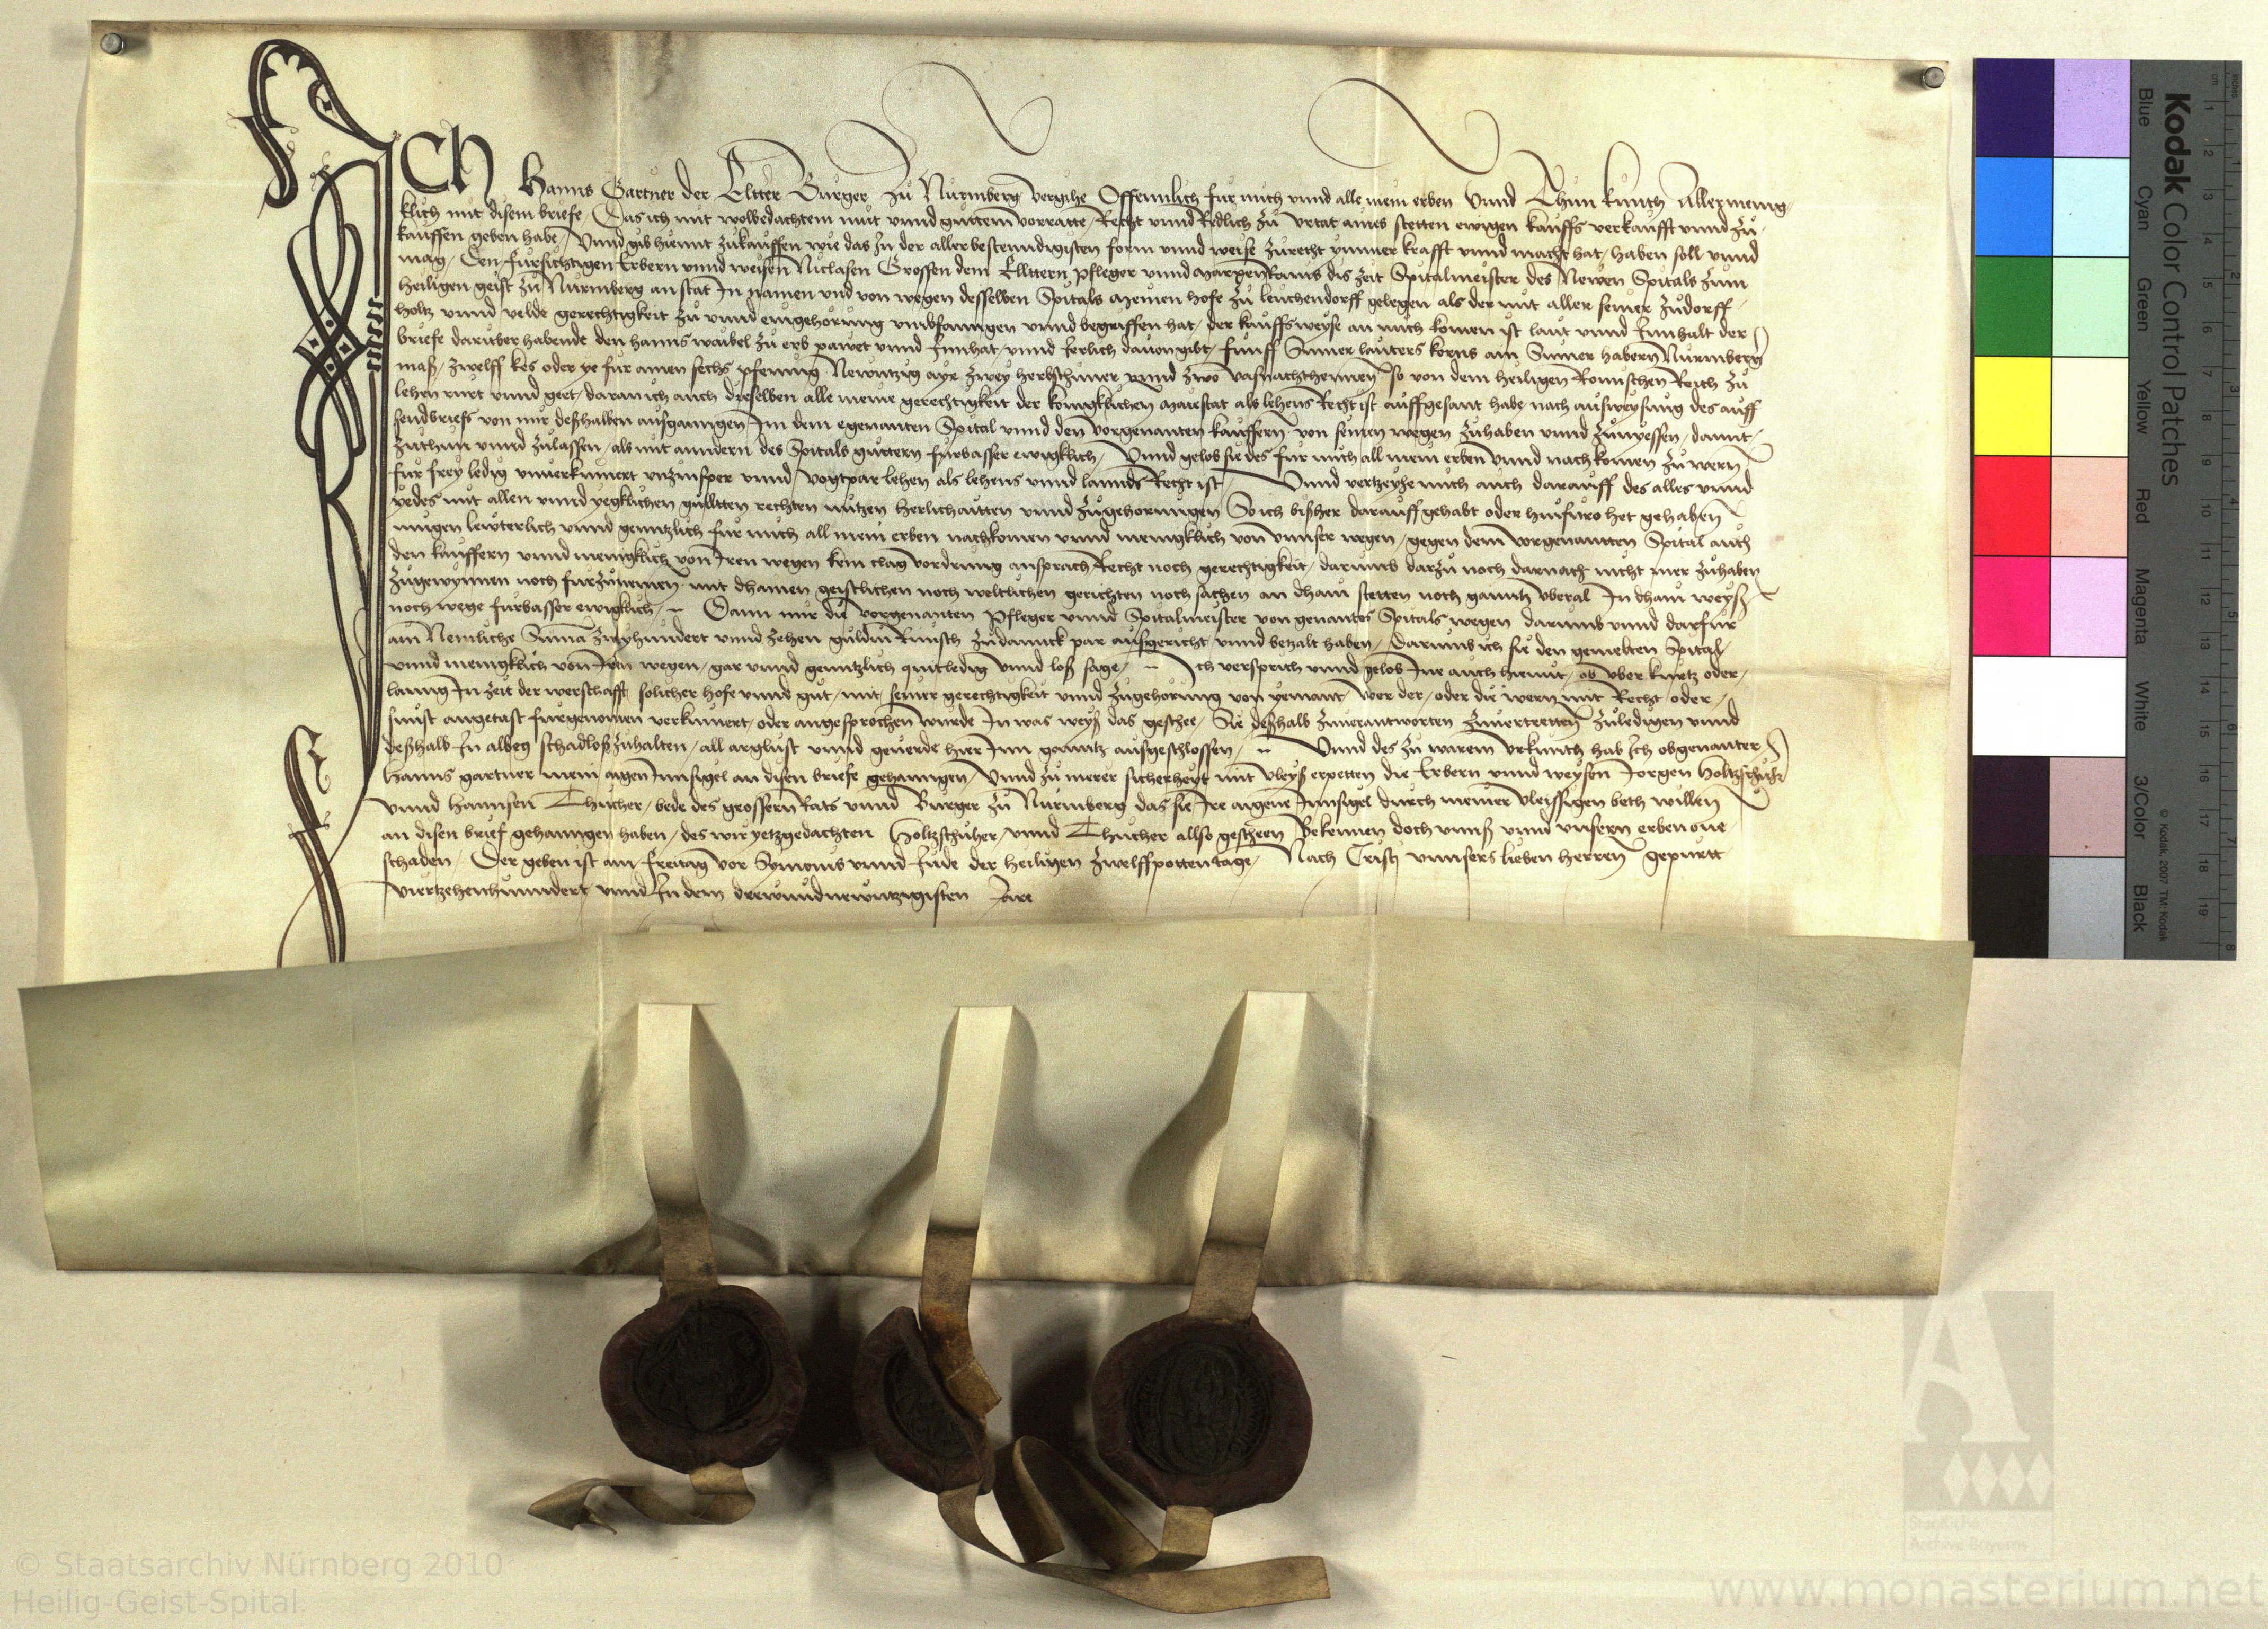 Ich Hanns Gartner der Eltter Burger zu Nurmberg vergihe Offennlich fur mich vnnd alle mein erben Vnnd Thun kunth Allermenig-
klich mit disem briefe / Das ich mit wolbedachtem mut vnnd guttem vorratte / Recht vnnd Redlich zu vrtat aines stetten ewigen kauffs verkaufft vnnd zu-
kauffen geben habe / Vnnd gib hiemit zukauffen wie das In der allerbestenndigisten form vnnd weise zurecht ymmer krafft vnnd macht hat / haben soll vnnd
mag / Den fursichtigen Erbern vnnd weisen Niclasen Grossen dem Elltern pfleger vnnd dis zeit Spitalmeister des Newen Spitals zum
heiligen geist zu Nurmberg an stat In namen vnd von wegen desselben Spitals meinen hofe zu leuchendorff gelegen als der mit aller seiner zudorff-
holtz vnnd velde gerechtigkeit zu vnnd eingehorung vmbfanngen vnnd begriffen hat / der kauffsweyse an mich komen ist laut vnnd Innhalt der
briefe daruber habende den hanns waibel zu erb pawet vnnd Innhat / vnnd Ierlich dauon gibt / funff Sumer lauters korns ain Sumer habern Nurmberg
maß / zwelff kes oder ye fur ainen sechs pfening Newntzig ayr zwey herbsthuner vnnd zwo vasnachthennen So von dem heiligen Romischen Reich zu
lehen rurt vnnd geet / daran ich auch dieselben alle meine gerechtigkeit der konigklichen Maiestat als lehens Recht ist auffgesant habe nach ausweysung des auff
sendbriefs von mir deßhalben außganngen Im dem egenanten Spital vnnd den vorgenanten kauffern von seinen wegen zuhaben vnnd zunyessen / damit-
zuthun vnnd zulassen / als mit anndern des Spitals guttern furbasser ewigklich / Vnnd gelob sie des fur mich all mein erben vnnd nachkomen zu wern
fur frey ledig vnuerkumert vnzinsper vnnd vogtpar lehen als lehens vnnd lannds Recht ist / Vnnd vertzeyhe mich auch darauff des alles vnnd
yedes mit allen vnnd yegklichen gulltten rechten nutzen herlichaitten vnnd zugehorungen So ich bißher darauff gehabt oder hinfuro het gehaben
mugen lewterlich vnnd genntzlich fur mich all mein erben nachkomen vnnd menigklich von vnnser wegen / gegen dem vorgenantten Spital auch
den kauffern vnnd menigklich von Iren wegen kein clag vordrung ansprach Recht noch gerechtigkeit / darumb darzu noch darnach nicht mer zuhaben
zugewynnen noch furzunemen mit dhainen geistlichen noch weltlichen gerichten noch sachen an dhain stetten noch ganntz vberal In dhain weyß
noch wege furbasser ewigklich / Dann mir die vorgenanten Pfleger vnnd Spitalmeister von genants Spitals wegen darumb vnnd darfur
ain Nemliche Suma zwyhundert vnnd zehen guldin Rinisch zudannck par außgericht vnnd betzalt haben / Darumb ich sie den gemelten Spital
vnnd menigklich von Iren wegen / gar vnnd genntzlich quitledig vnnd loß sage / Ich versprich vnnd gelob Ine auch hiemit / ob vber kurtz oder-
lanng In zeit der werschafft solicher hofe vnnd gut / mit seiner gerechtigkeit vnnd zugehorung von yemant / wer der / oder die wern mit Recht oder-
sunst angetast furgenomen verkumert / oder angesprochen wurde In was weyß das geschee / Sie deßhalb zuuerantworten zuuertretten zuledigen vnnd
deßhalb In albeg schadloß zuhalten / all arglist vnnd geuerde hier Inn ganntz außgeschlossen / Vnnd des zu warem Vrkunth hab Ich obgenanter
Hanns gartner mein aigen Innsigel an disen briefe gehanngen / Vnnd zu merer sicherheyt mit vleyß erpetten die Erbern vnnd weysen Jorgen Holtzschuher
vnnd hannsen Thucher / bede des grossern Rats vnnd Burger zu Nurmberg das sie Ire aigene Innsigel durch meiner vleissigen beth willen
an disen brief gehanngen haben / des wir yetzgedachten Holtzschuher / vnnd Thucher allso gescheen Bekennen doch vnnß vnnd vnsern erben one
schaden / Der geben ist am Freitag vor Symonis vnnd Jude der heiligen zwelffpotten tage / Nach Cristi vnnsers lieben herren gepurtt
viertzehenhunndert vnnd In dem drewundnewntzigisten Jare
Kodak Color Control Patches
Blue Cyan Green Yellow Red Magenta White 3/Color Black
© Kodak, 2007 TM: Kodak
© Staatsarchiv Nürnberg 2010
Heilig-Geist-Spital
Staatliche
Archive Bayerns
www.monasterium.net